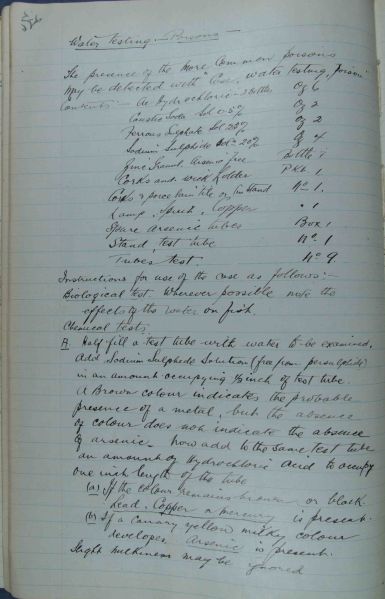 Water Testing - Poisons -
The presence of the more common poisons
may be detected with "Case, water testing, poison"
Contents :- Ac Hydrochloric - 2 bottles Oz 6
Caustic Soda Sol 0.5% Oz 2
Ferrous Sulphate Sol 20% Oz 2
Sodium Sulphide Sol 20% Oz 4
Zinc Granul Arsenic free Bottle 1
Corks and wick holder Pkt. 1
Corks & porcelain tile on tin stand No 1.
Lamp, Spirit, Copper " 1
Spare arsenic tubes Box 1
Stand test tube No 1
Tubes test No 9
Instructions for use of the case as follows :-
Biological test. Wherever possible note the
effects of the water on fish.
Chemical tests.
A. Half fill a test tube with water to be examined,
Add Sodium Sulphide Solution (free from persulphide)
in an amount occupying ½ inch of test tube.
A Brown colour indicates the probable
presence of a metal, but the absence
of colour does not indicate the absence
of arsenic. Now add to the same test tube
an amount of Hydrochloric acid to occupy
one inch length of the tube
(a) If the colour remains brown or black
Lead, Copper or Mercury is present.
(b) If a canary yellow milky colour
developes Arsenic is present.
Slight milkiness may be ignored